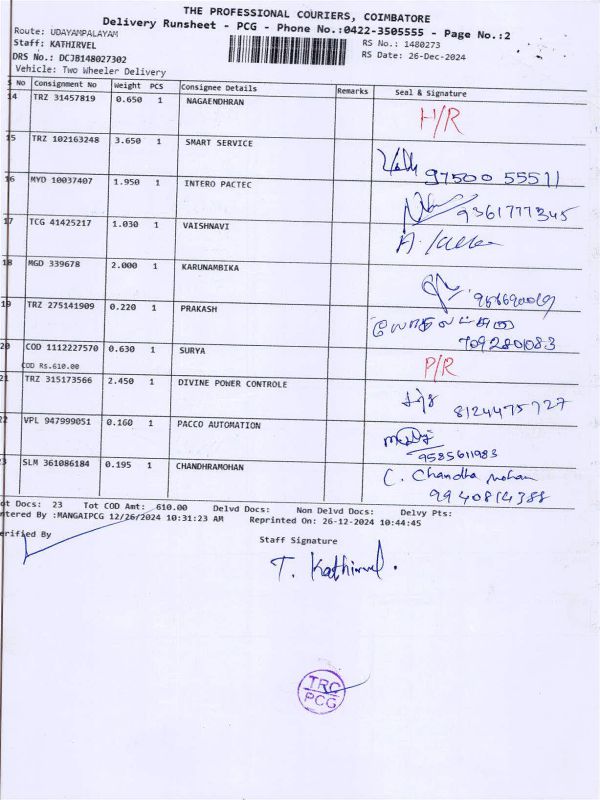 THE PROFESSIONAL COURIERS, COIMBATORE
Delivery Runsheet - PCG - Phone No.:0422-3505555 - Page No.:2
Route: UDAYAMPALAYAM
Staff: KATHIRVEL
RS No.: 1480273
DRS No.: DCJB148027302
RS Date: 26-Dec-2024
Vehicle: Two Wheeler Delivery
S No Consignment No Weight PCS Consignee Details Remarks Seal & Signature
14 TRZ 31457819 0.650 1 NAGAENDHRAN H/R
15 TRZ 102163248 3.650 1 SMART SERVICE
97500 55511
16 MYD 10037407 1.950 1 INTERO PACTEC
9361777345
17 TCG 41425217 1.030 1 VAISHNAVI
18 MGD 339678 2.000 1 KARUNAMBIKA
19 TRZ 275141909 0.220 1 PRAKASH
7092801083
20 COD 1112227570 0.630 1 SURYA P/R
COD Rs.610.00
21 TRZ 315173566 2.450 1 DIVINE POWER CONTROLE
8124475727
22 VPL 947999051 0.160 1 PACCO AUTOMATION
9585611983
23 SLM 361086184 0.195 1 CHANDHRAMOHAN C. Chandha mohan
9940814388
ot Docs: 23 Tot COD Amt: 610.00 Delvd Docs: Non Delvd Docs: Delvy Pts:
ntered By :MANGAIPCG 12/26/2024 10:31:23 AM Reprinted On: 26-12-2024 10:44:45
erified By
Staff Signature
T. Kathirvel.
TRC
PCG